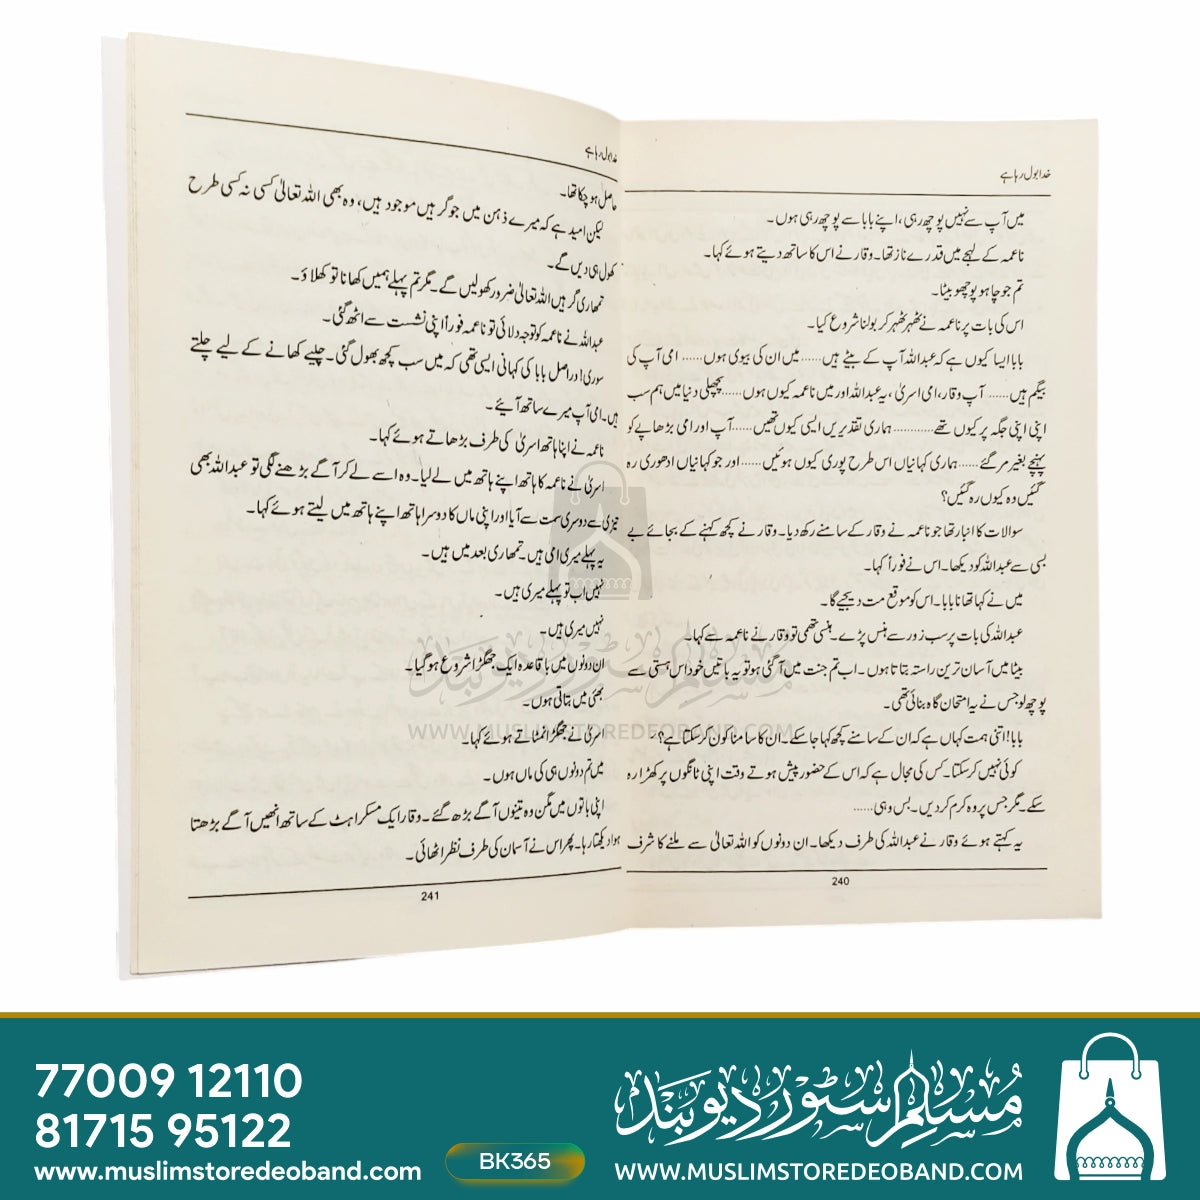 خدا بول رہا ہے
میں آپ سے نہیں پوچھ رہی، اپنے بابا سے پوچھ رہی ہوں۔
ناعمہ کے لہجے میں قدرے ناز تھا۔ وقار نے اس کا ساتھ دیتے ہوئے کہا۔
تم جو چاہو پوچھو بیٹا۔
اس کی بات پر ناعمہ نے ٹھہر ٹھہر کر بولنا شروع کیا۔
بابا ایسا کیوں ہے کہ عبداللہ آپ کے بیٹے ہیں......میں ان کی بیوی ہوں...... امی آپ کی
بیگم ہیں...... آپ وقار، امی اسریٰ، یہ عبداللہ اور میں ناعمہ کیوں ہوں......پچھلی دنیا میں ہم سب
اپنی اپنی جگہ پر کیوں تھے............ ہماری تقدیریں ایسی کیوں تھیں......آپ اور امی بڑھاپے کو
پہنچے بغیر مر گئے......ہماری کہانیاں اس طرح پوری کیوں ہوئیں......اور جو کہانیاں ادھوری رہ
گئیں وہ کیوں رہ گئیں؟
سوالات کا انبار تھا جو ناعمہ نے وقار کے سامنے رکھ دیا۔ وقار نے کچھ کہنے کے بجائے بے
بسی سے عبداللہ کو دیکھا۔ اس نے فوراً کہا۔
میں نے کہا تھا نا بابا۔ اس کو موقع مت دیجیے گا۔
عبداللہ کی بات پر سب زور سے ہنس پڑے۔ ہنسی تھمی تو وقار نے ناعمہ سے کہا۔
بیٹا میں آسان ترین راستہ بتاتا ہوں۔ اب تم جنت میں آ گئی ہو تو یہ باتیں خود اس ہستی سے
پوچھ لو جس نے یہ امتحان گاہ بنائی تھی۔
بابا! اتنی ہمت کہاں ہے کہ ان کے سامنے کچھ کہا جا سکے۔ ان کا سامنا کون کر سکتا ہے؟
کوئی نہیں کر سکتا۔ کس کی مجال ہے کہ اس کے حضور پیش ہوتے وقت اپنی ٹانگوں پر کھڑا رہ
سکے۔ مگر جس پر وہ کرم کر دیں۔ بس وہی......
یہ کہتے ہوئے وقار نے عبداللہ کی طرف دیکھا۔ ان دونوں کو اللہ تعالیٰ سے ملنے کا شرف
240
خدا بول رہا ہے
حاصل ہو چکا تھا۔
لیکن امید ہے کہ میرے ذہن میں جو گرہیں موجود ہیں، وہ بھی اللہ تعالیٰ کسی نہ کسی طرح
کھول ہی دیں گے۔
تمہاری گرہیں اللہ تعالیٰ ضرور کھولیں گے۔ مگر تم پہلے ہمیں کھانا تو کھلاؤ۔
عبداللہ نے ناعمہ کو توجہ دلائی تو ناعمہ فوراً اپنی نشست سے اٹھ گئی۔
سوری! دراصل بابا کی کہانی ایسی تھی کہ میں سب کچھ بھول گئی۔ چلیے کھانے کے لیے چلتے
ہیں۔ امی آپ میرے ساتھ آیئے۔
ناعمہ نے اپنا ہاتھ اسریٰ کی طرف بڑھاتے ہوئے کہا۔
اسریٰ نے ناعمہ کا ہاتھ اپنے ہاتھ میں لے لیا۔ وہ اسے لے کر آگے بڑھنے لگی تو عبداللہ بھی
تیزی سے دوسری سمت سے آیا اور اپنی ماں کا دوسرا ہاتھ اپنے ہاتھ میں لیتے ہوئے کہا۔
یہ پہلے میری امی ہیں۔ تمھاری بعد میں ہیں۔
نہیں اب تو پہلے میری ہیں۔
نہیں میری ہیں۔
ان دونوں میں باقاعدہ ایک جھگڑا شروع ہو گیا۔
بھئی میں بتاتی ہوں۔
اسریٰ نے جھگڑا نمٹاتے ہوئے کہا۔
میں تم دونوں ہی کی ماں ہوں۔
اپنی باتوں میں مگن وہ تینوں آگے بڑھ گئے۔ وقار ایک مسکراہٹ کے ساتھ انھیں آگے بڑھتا
ہوا دیکھتا رہا۔ پھر اس نے آسمان کی طرف نظر اٹھائی۔
241
مسلم سٹور دیوبند
WWW.MUSLIMSTOREDEOBAND.COM
77009 12110
81715 95122
www.muslimstoredeoband.com
BK365
مسلم سٹور دیوبند
WWW.MUSLIMSTOREDEOBAND.COM